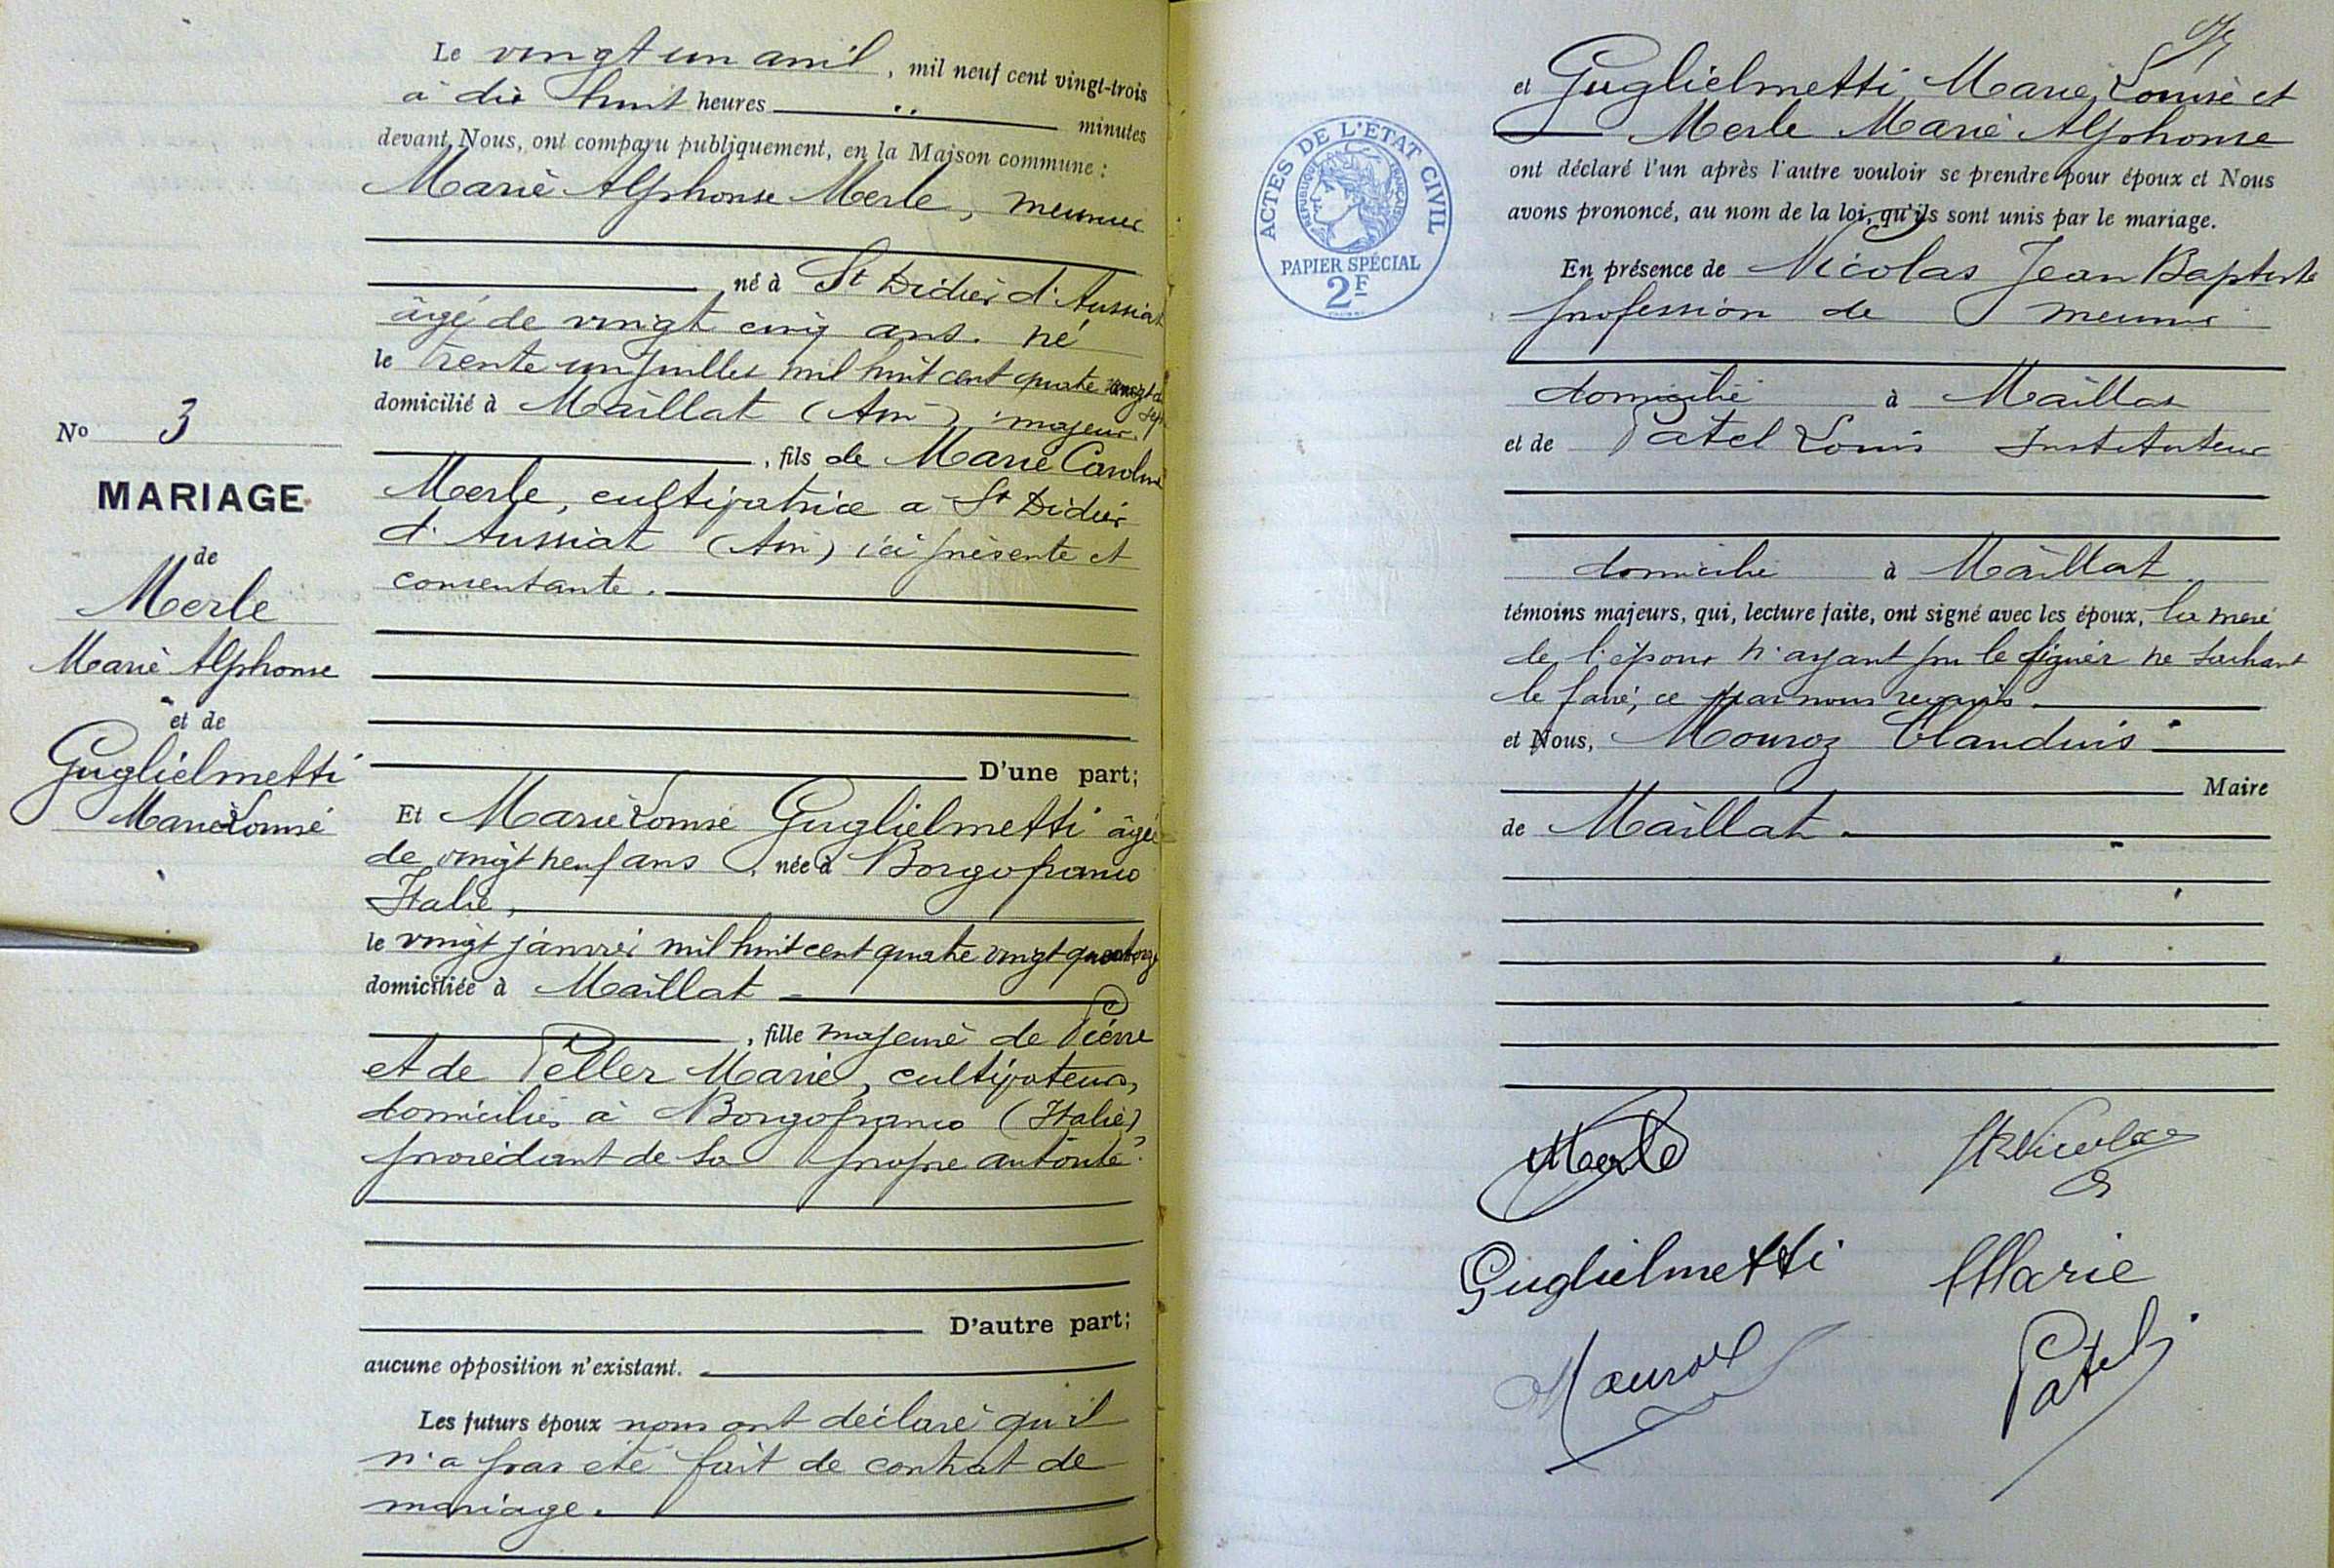 Le vingt un avril, mil neuf cent vingt-trois
à dix huit heures " minutes
devant Nous, ont comparu publiquement, en la Maison commune :
Marie Alphonse Merle, meunier
né à St Didier d'Aussiat
âgé de vingt cinq ans. né
le trente un juillet mil huit cent quatre vingt dix sept
domicilié à Maillat (Ain) majeur,
, fils de Marie Caroline
Merle, cultivatrice a St Didier
d'Aussiat (Ain) ici présente et
consentante.
D'une part;
No 3
MARIAGE
de
Merle
Marie Alphonse
et de
Guglielmetti
Marie Louise
Et Marie Louise Guglielmetti âgée
de vingt neuf ans, née à Borgofranco
Italie,
le vingt janvier mil huit cent quatre vingt quatorze
domiciliée à Maillat
, fille majeure de Pierre
et de Peller Marie, cultivateurs,
domiciliés à Borgofranco (Italie)
procédant de sa propre autorité.
D'autre part;
aucune opposition n'existant.
Les futurs époux nous ont déclaré qu'il
n'a pas été fait de contrat de
mariage.
et Guglielmetti Marie Louise et
Merle Marie Alphonse
ont déclaré l'un après l'autre vouloir se prendre pour époux et Nous
avons prononcé, au nom de la loi, qu'ils sont unis par le mariage.
ACTES DE L'ÉTAT CIVIL
RÉPUBLIQUE FRANÇAISE
PAPIER SPÉCIAL
2F
En présence de Nicolas Jean Baptiste
profession de meunier
domicilié à Maillat
et de Patel Louis Instituteur
domicilié à Maillat
témoins majeurs, qui, lecture faite, ont signé avec les époux, la mère
de l'époux n'ayant pu le signer ne sachant
le faire, ce par nous requis.
et Nous, Mouroz Claudius
Maire
de Maillat.
Merle
JB Nicolas
Guglielmetti Marie
Mouroz
Patel